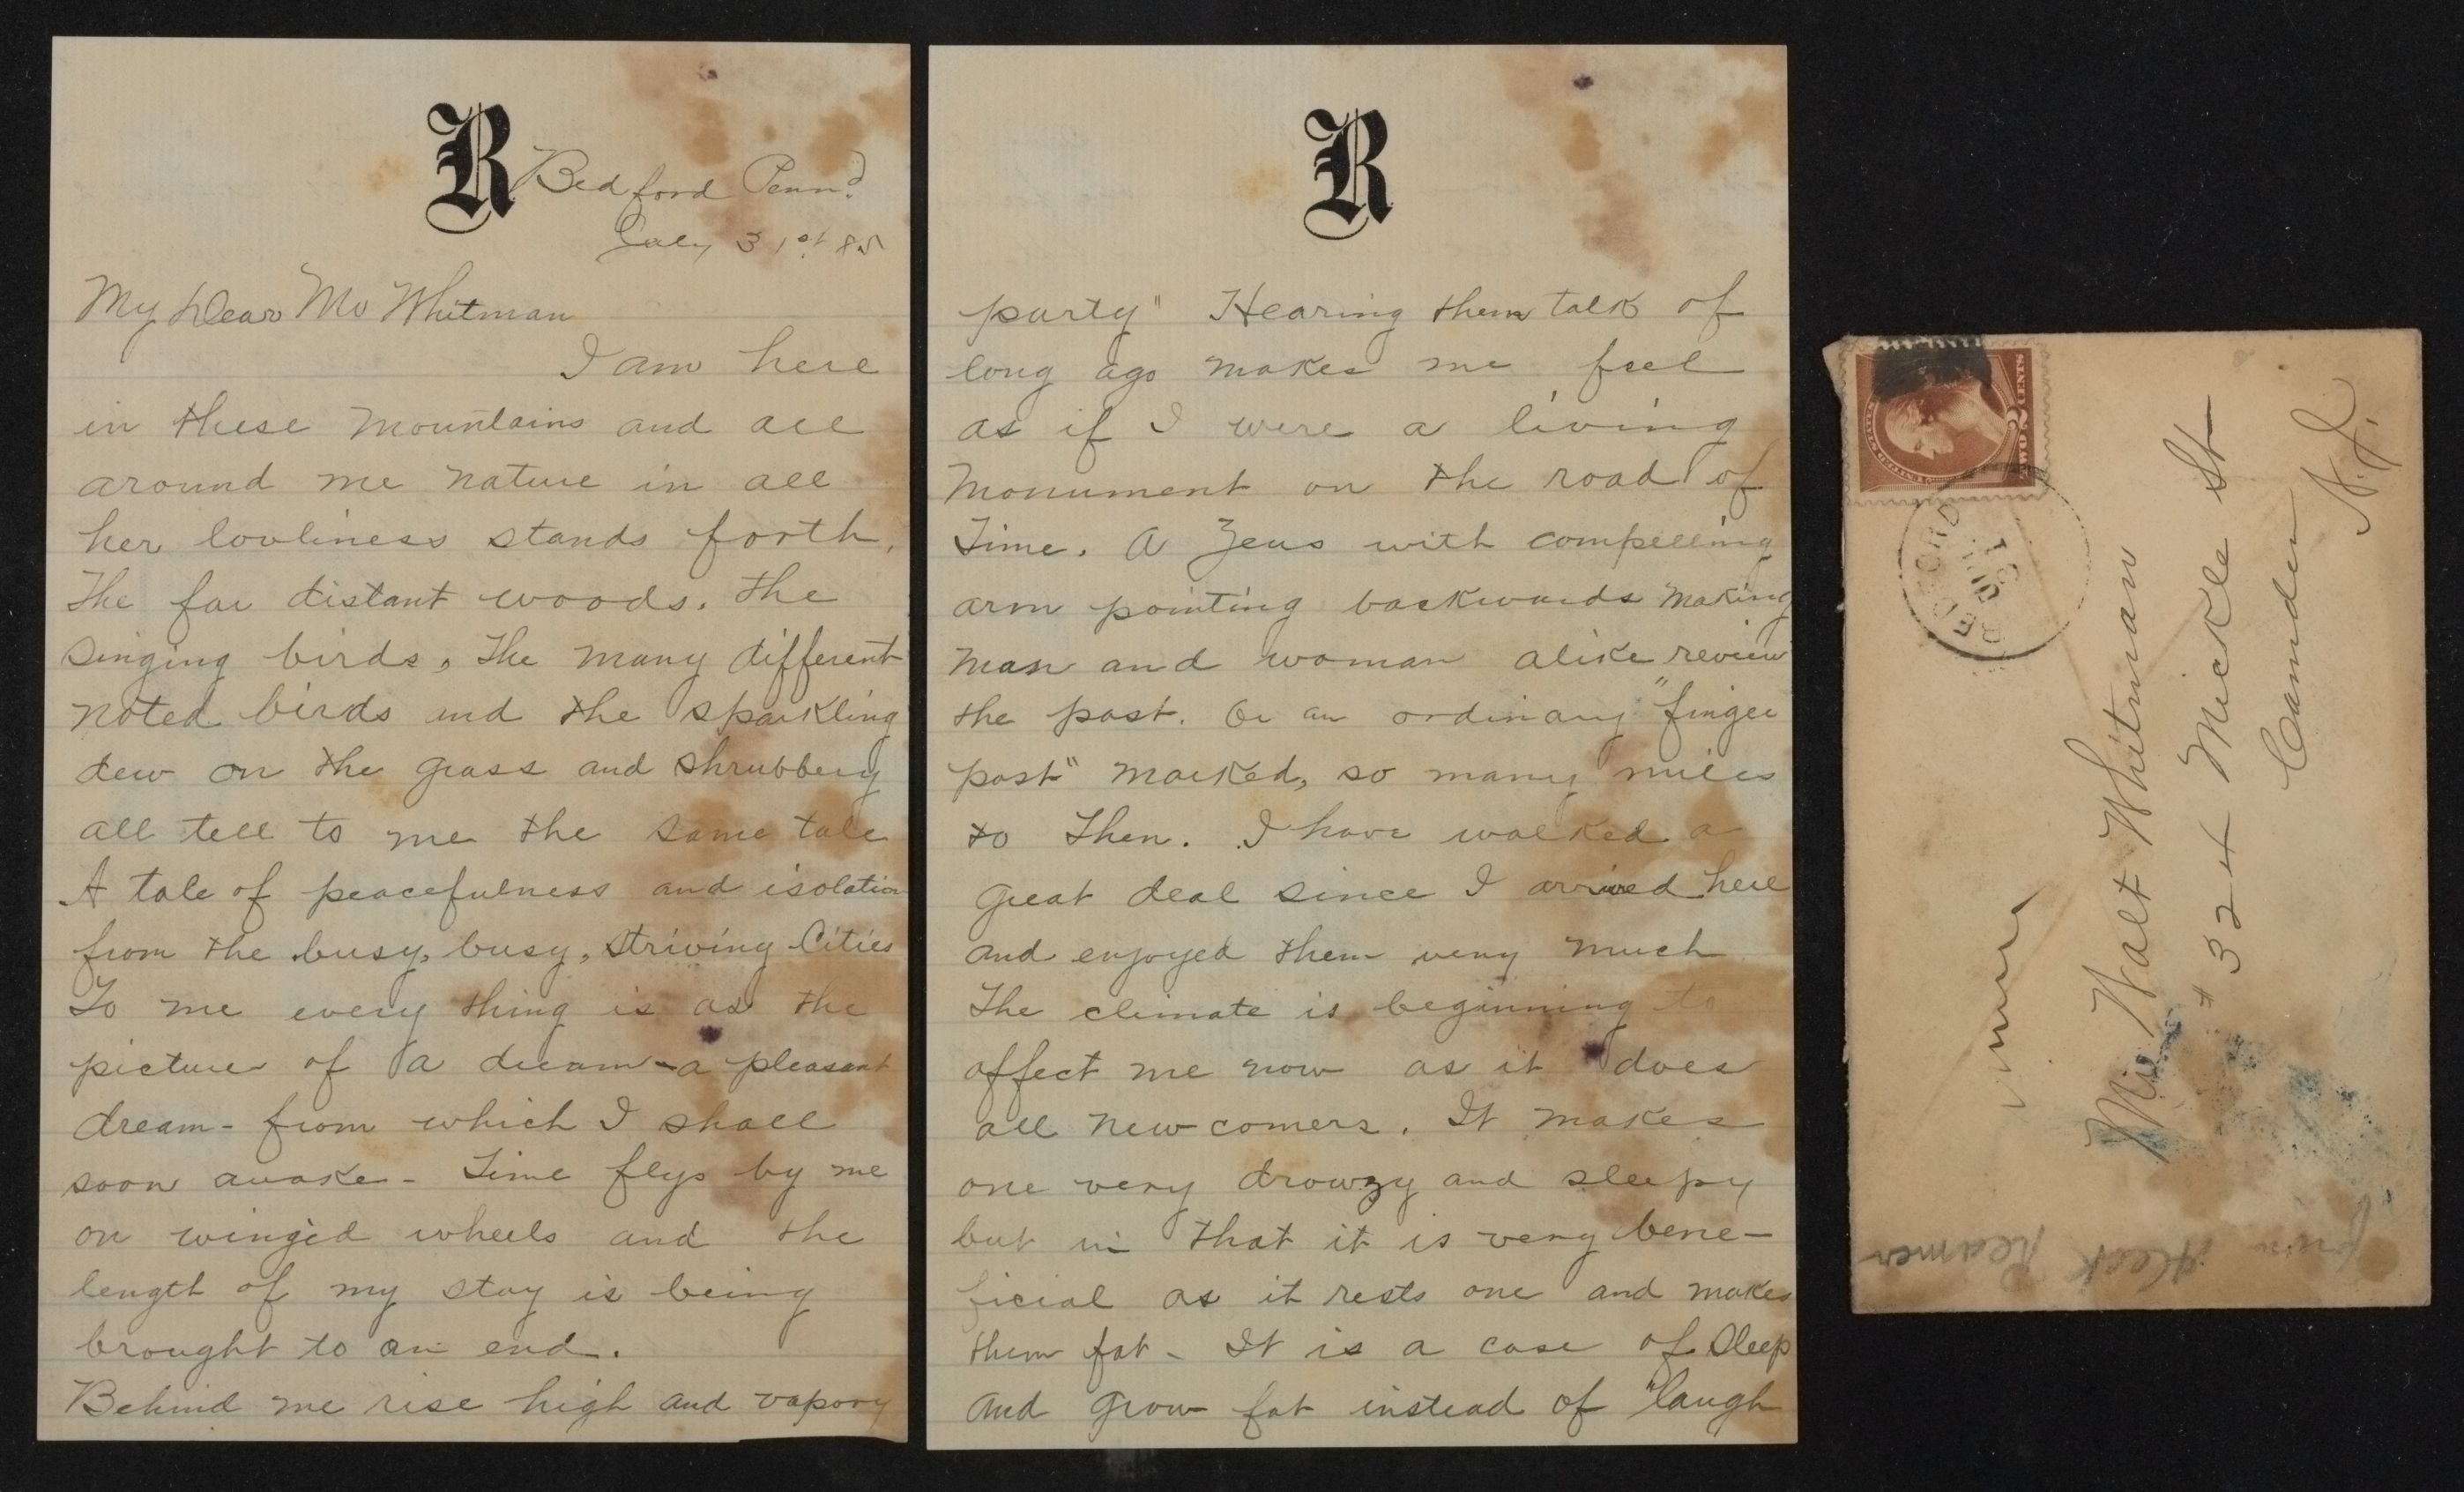 R
Bedford Penna
July 31st 85
My Dear Mr Whitman
I am here
in these mountains and all
around me nature in all
her lovliness stands forth.
The far distant woods. the
singing birds, the many different
noted birds and the sparkling
dew on the grass and shrubbery
all tell to me the same tale
A tale of peacefulness and isolation
from the busy, busy, striving Cities
To me every thing is as the
picture of a dream - a pleasant
dream - from which I shall
soon awake - Time flys by me
on winged wheels and the
length of my stay is being
brought to an end.
Behind me rise high and vapory
R
party" Hearing them talk of
long ago makes me feel
as if I were a living
Monument on the road of
Time. A Zeus with compelling
arm pointing backwards making
man and woman alike review
the past. Or an ordinary "finger
post" marked, so many miles
to Then. I have walked a
great deal since I arrived here
and enjoyed them very much
The climate is beginning to
affect me now as it does
all new comers. It makes
one very drowzy and sleepy
but in that it is very bene-
ficial as it rests one and makes
them fat - It is a case of sleep
and grow fat instead of "laugh
UNITED STATES
2 TWO CENTS
BEDFORD
JUL
31
Mr Walt Whitman
# 324 Mickle St
Camden
N.J.
from Heck Reamer